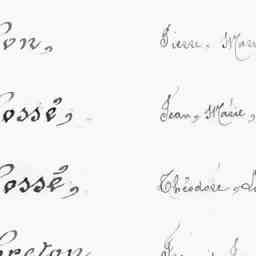 on, Pierre, Mari
ossé, Jean, Marie,
ossé, Théodore,
reton